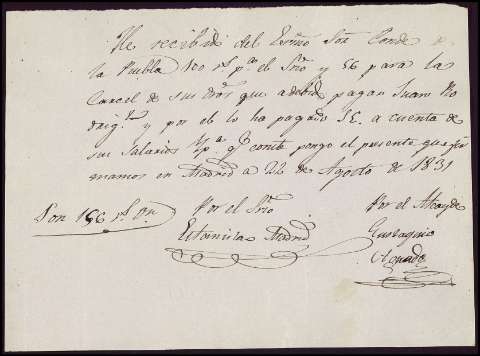 He recibido del Exmo Sor Conde de
la Puebla 100 rs pa el Srio y 56 para la
Carcel de sus dros que a debido pagar Juan Ro
drigz y por el lo ha pagado S.E. a cuenta de
sus salarios y pa q conste pongo el presente que fir
mamos en Madrid a 22 de Agosto de 1831
Son 156 rs vn
Por el Srio
Madrid
Por el Alcayde
Eustaquio
Aguado